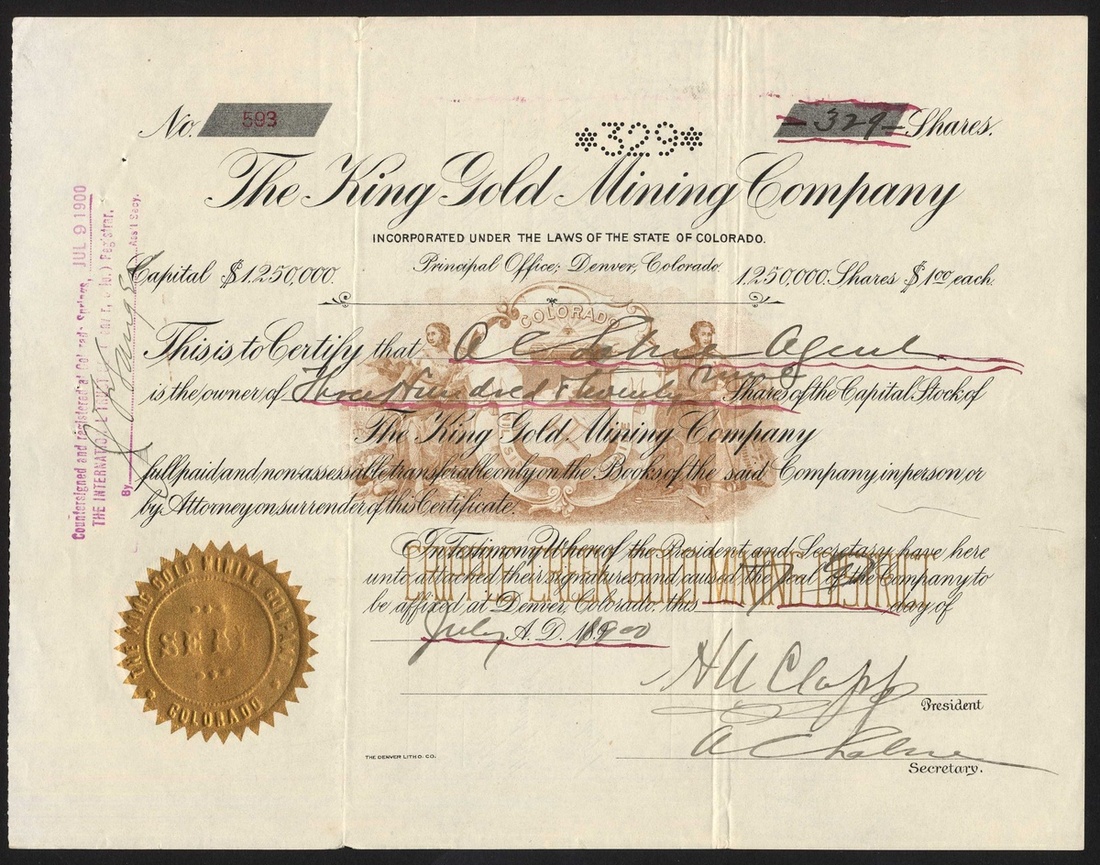 No. 593
*329*
-329- Shares.
The King Gold Mining Company
INCORPORATED UNDER THE LAWS OF THE STATE OF COLORADO.
Capital $1,250,000. Principal Office; Denver, Colorado. 1,250,000 Shares $1.00 each.
COLORADO
This is to Certify that A C Agent
is the owner of Three Hundred & twenty nine Shares of the Capital Stock of
The King Gold Mining Company
full paid and non-assessable transferable only on the Books of the said Company in person or
by Attorney on surrender of this Certificate.
CRIPPLE CREEK GOLD MINING DISTRICT
In Testimony Whereof the President and Secretary have here
unto attached their signatures and caused the Seal of the Company to
be affixed at Denver, Colorado, this 7 day of
July A.D. 1900
H A Clapp
President
A C
Secretary.
THE DENVER LITHO. CO.
THE KING GOLD MINING COMPANY
SEAL
COLORADO
Countersigned and registered at Colorado Springs, JUL 9 1900
THE INTERNATIONAL TRUST Registrar,
By Ass't Secy.